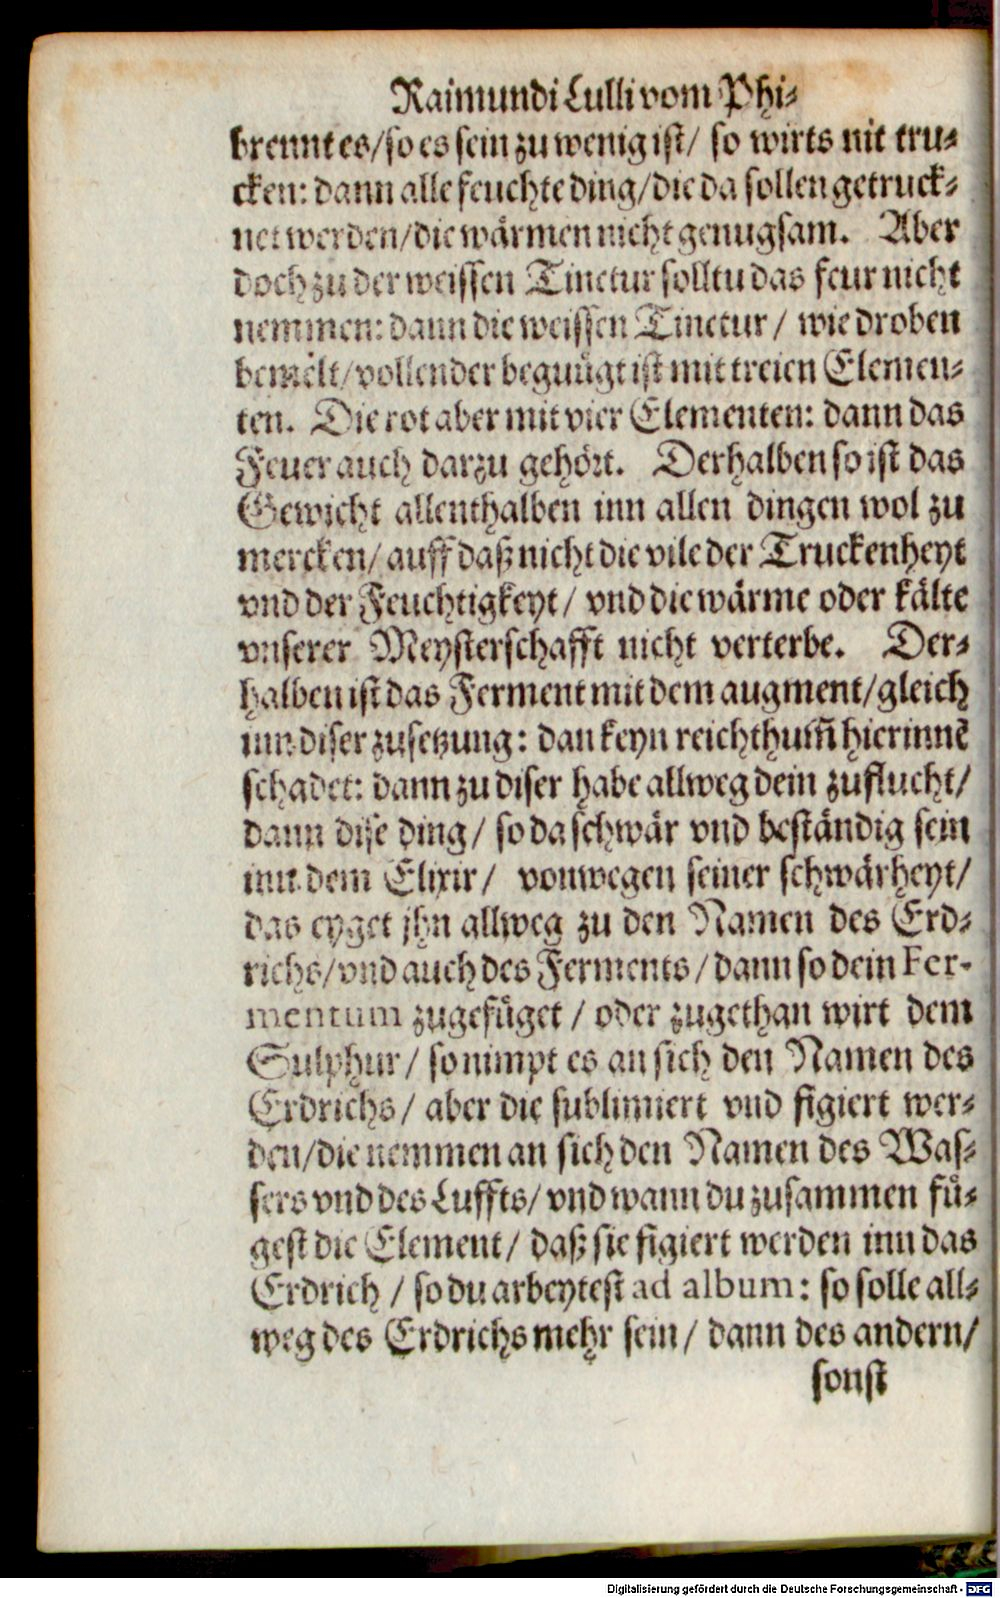 Raimundi Lulli vom Phi-
brennt es/ so es sein zu wenig ist/ so wirts nit tru-
cken: dann alle feuchte ding/ die da sollen getruck-
net werden/ die wärmen nicht genugsam. Aber
doch zu der weissen Tinctur solltu das feur nicht
nemmen: dann die weissen Tinctur/ wie droben
bemelt/ vollender beguügt ist mit treien Elemen-
ten. Die rot aber mit vier Elementen: dann das
Feuer auch darzu gehört. Derhalben so ist das
Gewicht allenthalben inn allen dingen wol zu
mercken/ auff daß nicht die vile der Truckenheyt
vnd der Feuchtigkeyt/ vnd die wärme oder kälte
vnserer Meysterschafft nicht verterbe. Der-
halben ist das Ferment mit dem augment/ gleich
inn diser zusetzung: dan keyn reichthum̃ hierinnẽ
schadet: dann zu diser habe allweg dein zuflucht/
dann dise ding/ so da schwär vnd beständig sein
inn dem Elixir/ vonwegen seiner schwärheyt/
das eyget jhn allweg zu den Namen des Erd-
richs/ vnd auch des Ferments/ dann so dein Fer-
mentum zugefüget/ oder zugethan wirt dem
Sulphur/ so nimpt es an sich den Namen des
Erdrichs/ aber die sublimiert vnd figiert wer-
den/ die nemmen an sich den Namen des Was-
sers vnd des Luffts/ vnd wann du zusammen fü-
gest die Element/ daß sie figiert werden inn das
Erdrich/ so du arbeytest ad album: so solle all-
weg des Erdrichs mehr sein/ dann des andern/
sonst
Digitalisierung gefördert durch die Deutsche Forschungsgemeinschaft - DFG